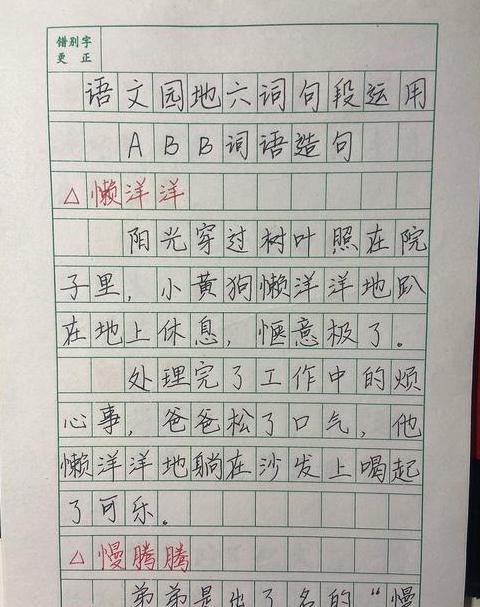 错别字
更 正
语文园地六词句段运用
ABB词语造句
△懒洋洋
阳光穿过树叶照在院
子里，小黄狗懒洋洋地趴
在地上休息，惬意极了。
处理完了工作中的烦
心事，爸爸松了口气，他
懒洋洋地躺在沙发上喝起
了可乐。
△慢腾腾
弟弟是出了名的“慢